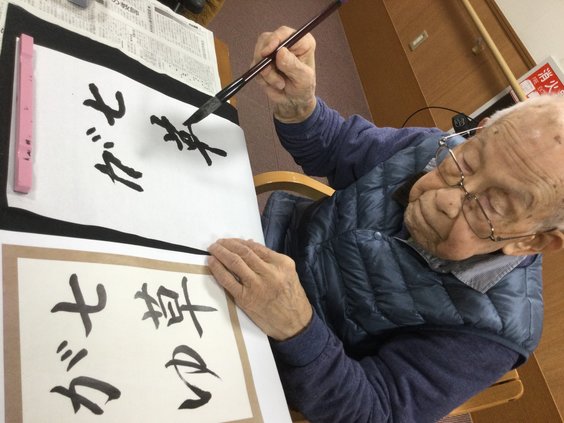 七草
が
七草
がゆ
消火